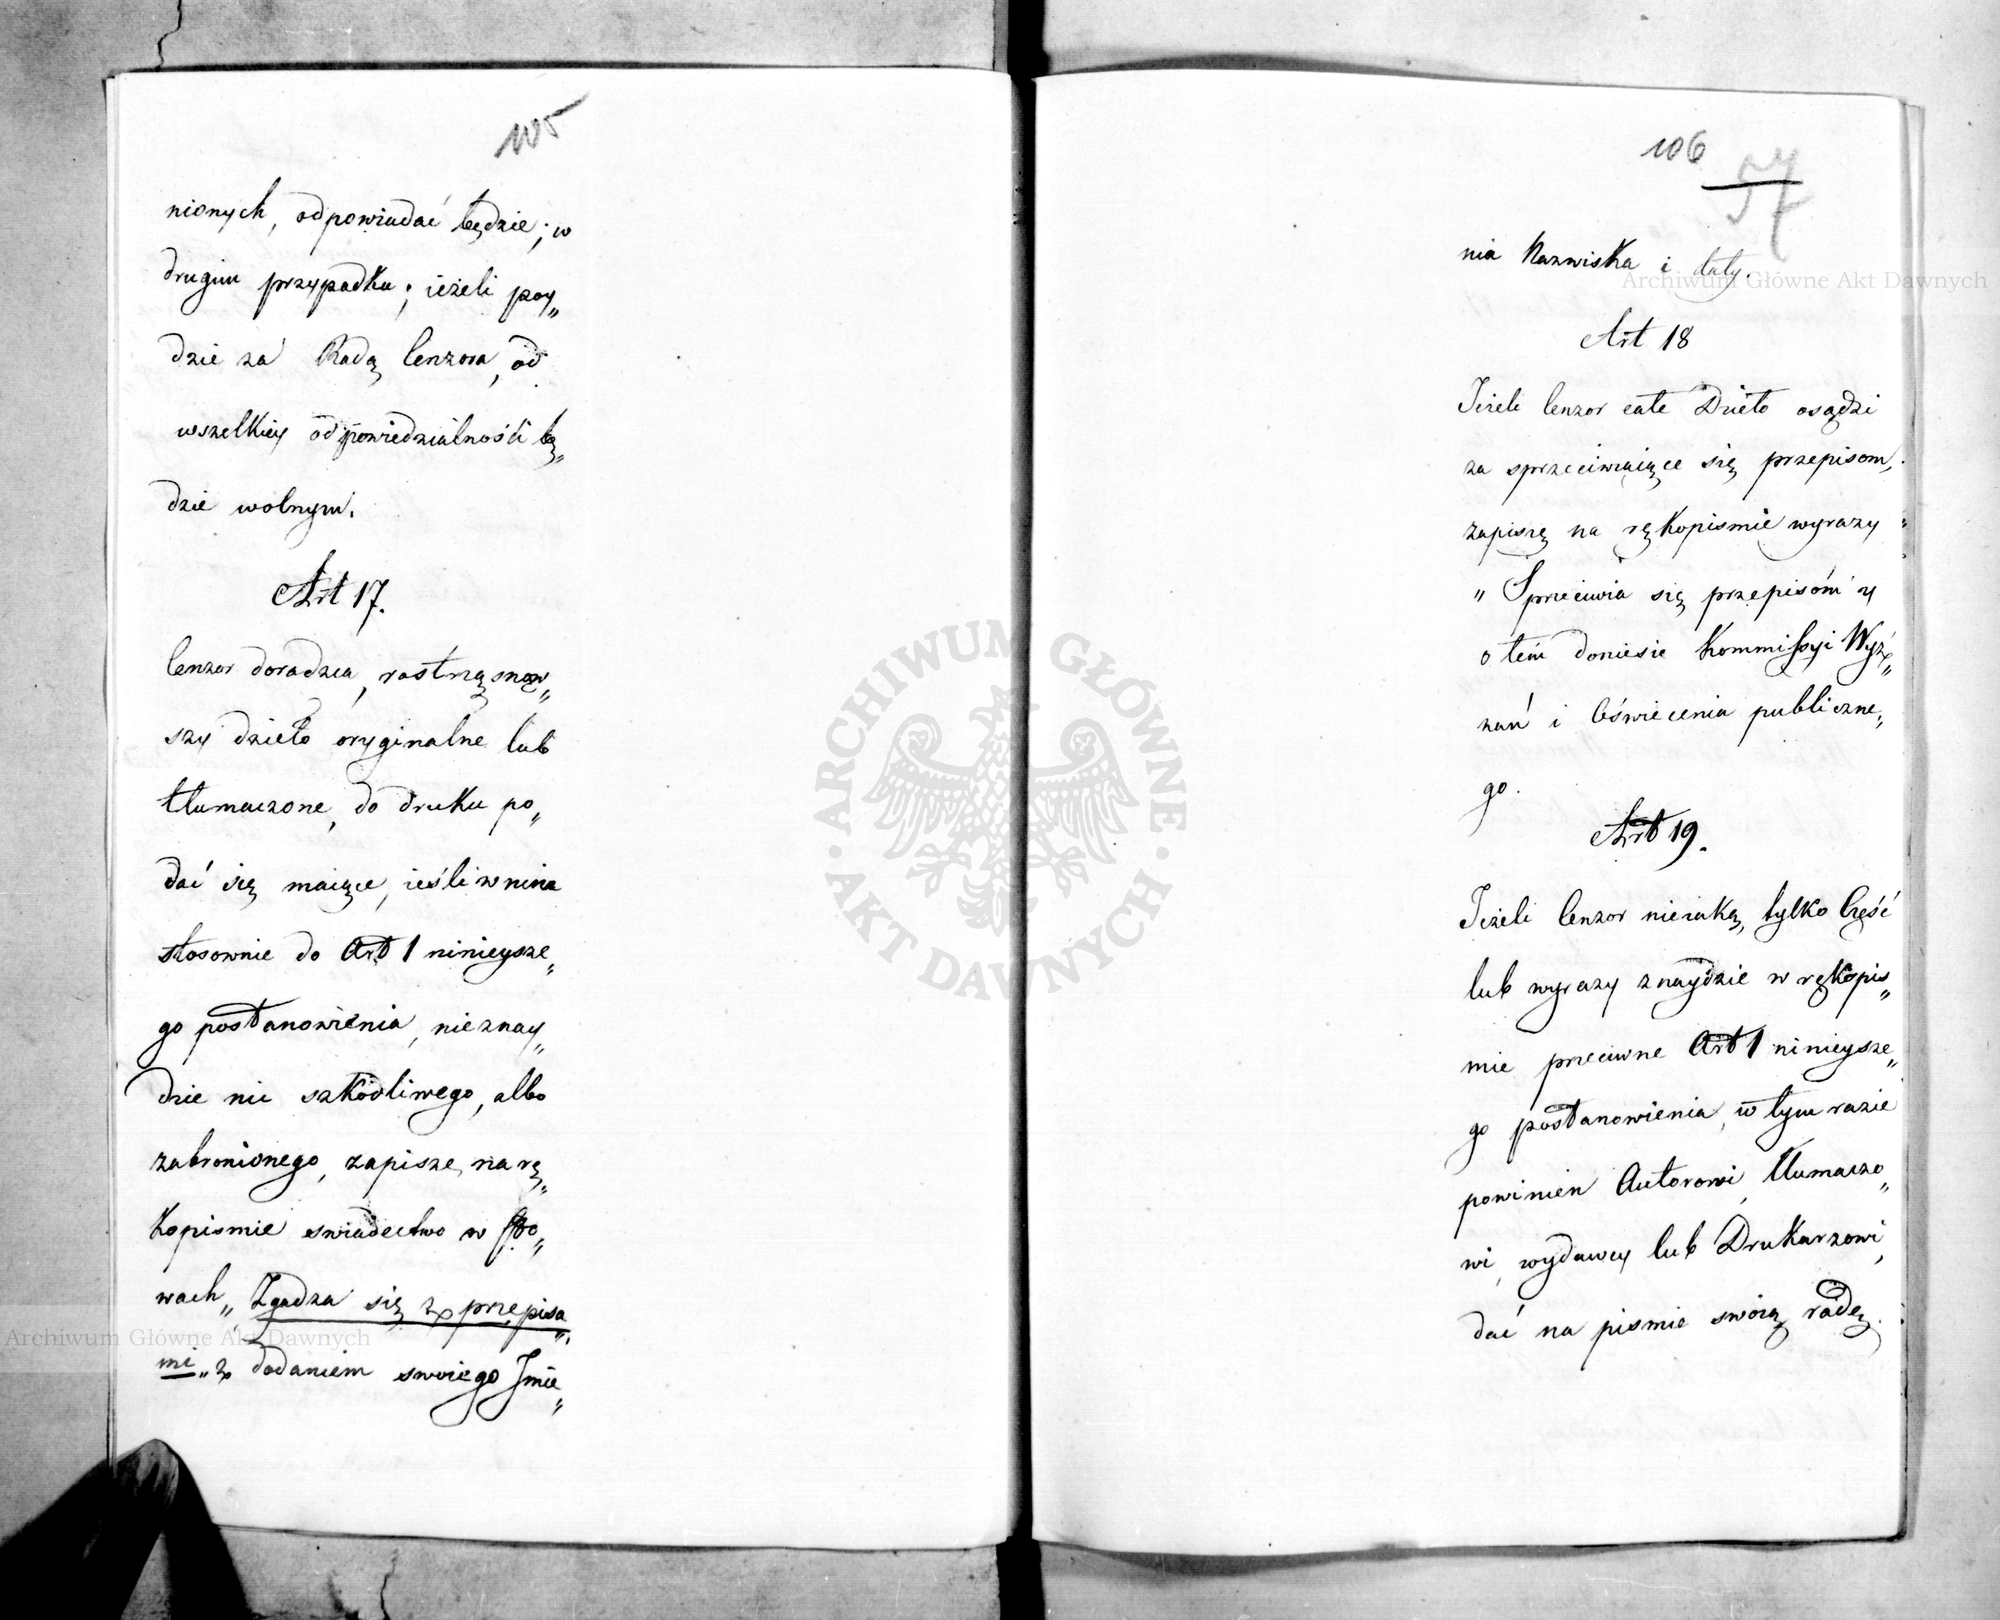 105
nionych, odpowiadać będzie; w
drugim przypadku; ieżeli poy„
dzie za Radą Cenzora, od
wszelkiey odpowiedzialności bę„
dzie wolnym.
Art 17.
Cenzor doradzca, rostrząsnąw„
szy dzieło oryginalne lub
tłumaczone, do druku po„
dać się maiące, ieśli w nim
stosownie do Art 1 ninieysze„
go postanowienia, nieznay„
dzie nic szkodliwego, albo
zabronionego, zapisze, na rę„
kopismie swiadectwo w sło„
wach „Zgadza się z przepisa„
mi„ z dodaniem swoiego Jmie„
106
57
nia Nazwiska i daty.
Art 18
Jeżeli Cenzor całe Dzieło osądzi
za sprzeciwiaiące się przepisom,
zapiszę na rękopismie wyrazy
„Sprzeciwia się przepisóm" y
o tém doniesie Kommissyi Wyz„
nań i Oświecenia publiczne„
go.
Art 19.
Jeżeli Cenzor nieiaką, tylko Część
lub wyrazy znaydzie w rękopis„
mie przeciwne Art 1 ninieysze„
go postanowienia, w tym razie
powinien Autorowi, tłumaczo„
wi, wydawcy lub Drukarzowi,
dać na pismie swoią radę.
Archiwum Główne Akt Dawnych
ARCHIWUM GŁÓWNE · AKT DAWNYCH ·
Archiwum Główne Akt Dawnych